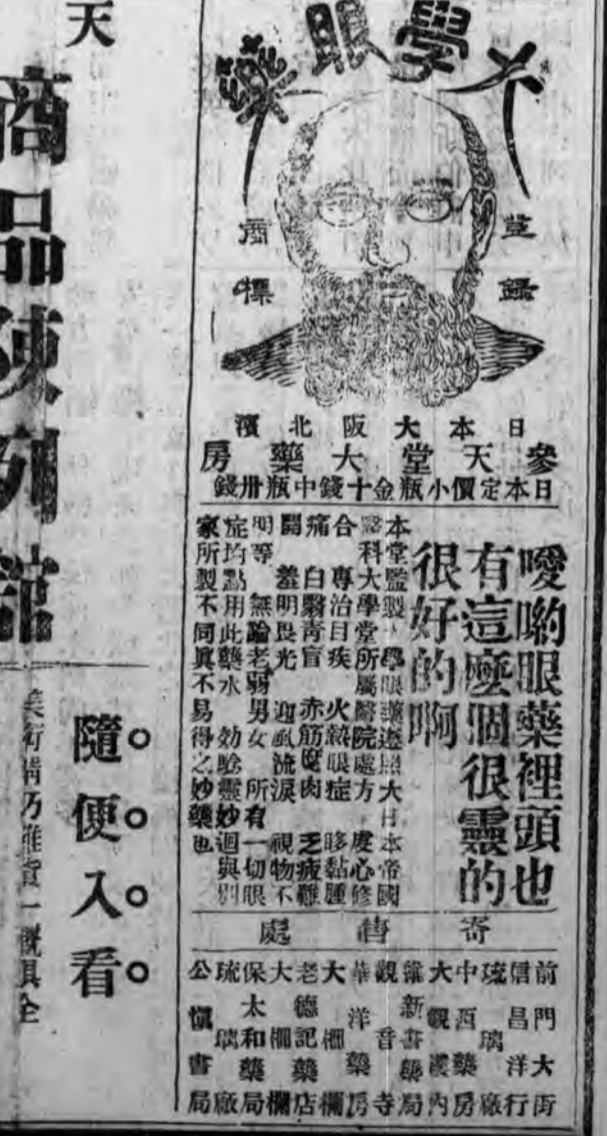 大學眼藥
登錄
商標
日本大阪北濱
參天堂大藥房
日本定價小瓶金十錢中瓶卅錢
噯喲眼藥裡頭也
有這麼個很靈的
很好的啊
本堂監製大學眼藥遵照大日本帝國
醫科大學堂所屬醫院處方 虔心修
合 專治目疾 火熱眼症 眵黏腫
痛 白翳青盲 赤筋肉 乏疲難
開 羞明畏光 迎風流淚 視物不
明等 無論老弱男女 所有一切眼
症均點用此藥水 効驗靈妙迴與別
家所製不同眞不易得之妙藥也
寄售處
前門大街
信昌洋行
琉璃廠
中西藥房
大觀樓內
維新書藥局
觀音寺
華洋藥房
大柵欄
老德記藥店
大柵欄
保太和藥局
琉璃廠
公慎書局
天
商品陳列館
隨便入看
美術精巧雜貨一概俱全